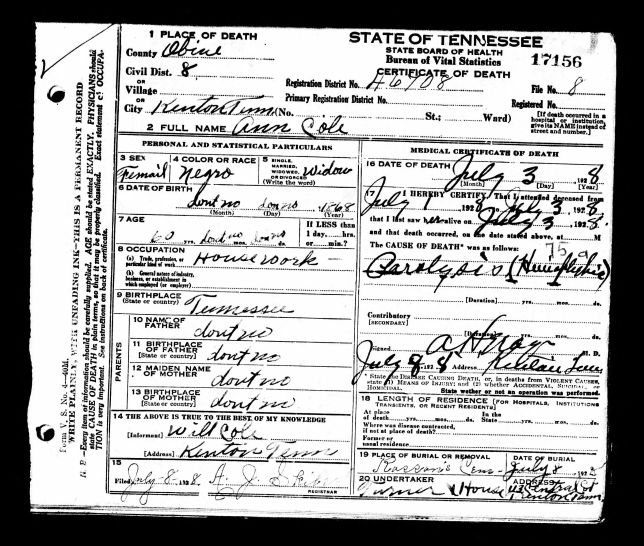 1 PLACE OF DEATH
County Obine
Civil Dist. 8
OR
Village
OR
City Kenton Tenn (No. St.; Ward)
2 FULL NAME Ann Cole
STATE OF TENNESSEE
STATE BOARD OF HEALTH
Bureau of Vital Statistics
CERTIFICATE OF DEATH
17156
Registration District No. 46708
File No. 8
Primary Registration District No.
Registered No.
[If death occurred in a hospital or institution, give its NAME instead of street and number.]
PERSONAL AND STATISTICAL PARTICULARS
3 SEX
Femail
4 COLOR OR RACE
Negro
5 SINGLE, MARRIED, WIDOWED, OR DIVORCED (Write the word)
Widow
6 DATE OF BIRTH
dont no dont no 1868
(Month) (Day) (Year)
7 AGE
60 yrs. dont no mos. dont no ds.
If LESS than 1 day,....hrs. or....min.?
8 OCCUPATION
(a) Trade, profession, or particular kind of work Housework
(b) General nature of industry, business, or establishment in which employed (or employer)
9 BIRTHPLACE
(State or country) Tennessee
PARENTS
10 NAME OF FATHER dont no
11 BIRTHPLACE OF FATHER dont no
12 MAIDEN NAME OF MOTHER dont no
13 BIRTHPLACE OF MOTHER dont no
14 THE ABOVE IS TRUE TO THE BEST OF MY KNOWLEDGE
[Informant] Will Cole
[Address] Kenton Tenn
15
Filed July-8- 1928 A. J.
REGISTRAR
MEDICAL CERTIFICATE OF DEATH
16 DATE OF DEATH July 3 1928
(Month) (Day) (Year)
17 I HEREBY CERTIFY, That I attended deceased from
July 1 1928, July 3, 1928
that I last saw alive on July 3 1928
and that death occurred, on the date stated above, at M
The CAUSE OF DEATH* was as follows: 75 a
Paralysis (Hemiplegia)
(Duration) yrs. mos. ds.
Contributory
(SECONDARY)
(Duration) yrs. mos. ds.
Signed A. Gray M. D.
July 8 1928 Address Kenton Tenn
* State the DISEASE CAUSING DEATH, or, in deaths from VIOLENT CAUSES, state (1) MEANS OF INJURY; and (2) whether ACCIDENTAL, SUICIDAL, or HOMICIDAL. State wether or not an operation was performed.
18 LENGTH OF RESIDENCE (FOR HOSPITALS, INSTITUTIONS TRANSIENTS, OR RECENT RESIDENTS)
At place of death yrs. mos. ds. State yrs. mos. ds.
Where was disease contracted, if not at place of death?
Former or usual residence
19 PLACE OF BURIAL OR REMOVAL
DATE OF BURIAL
Cem July 8 192
20 UNDERTAKER
Turner & House
ADDRESS
Central St
Kenton Tenn
Form V. S. No. 4—40M.
WRITE PLAINLY, WITH UNFADING INK—THIS IS A PERMANENT RECORD
N. B.—Every item of information should be carefully supplied. AGE should be stated EXACTLY. PHYSICIANS should state CAUSE OF DEATH in plain terms, so that it may be properly classified. Exact statement of OCCUPATION is very important. See instructions on back of certificate.